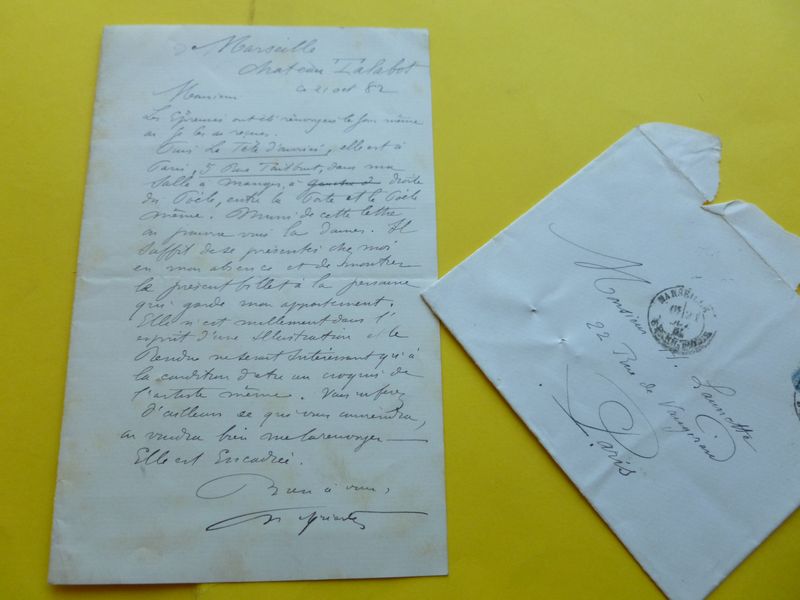 Marseille
Chateau Talabot
ce 21 oct 82
Monsieur
Les Epreuves ont été renvoyées le jour même
où je les ai reçues.
Oui! La Tête d'
elle est à
Paris, 5 Rue Taitbout, dans ma
Salle à manger, à gauche d droite
du Poêle, entre la Porte et le Poêle
même. Muni de cette lettre
on pourra vous la donner. Il
suffit de se présenter chez moi
en mon absence et de montrer
le présent billet à la personne
qui garde mon appartement.
Elle n'est nullement dans l'
esprit d'une Illustration et le
Rendre ne serait intéressant qu'à
la condition d'être un croquis de
l'artiste même. Vous en ferez
d'ailleurs ce que vous conviendra,
on voudra bien me la renvoyer
Elle est Encadrée.
Bien à vous,
MARSEILLE
Monsieur
22 Rue de Vaugirard
Paris